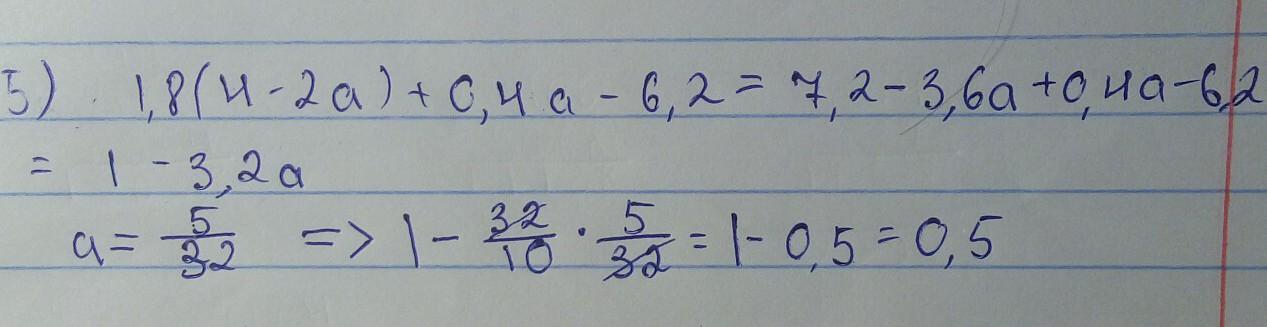 5) 1,8(4-2a)+0,4a-6,2=7,2-3,6a+0,4a-6,2
= 1-3,2a
a=5/32 => 1-32/10·5/32=1-0,5=0,5